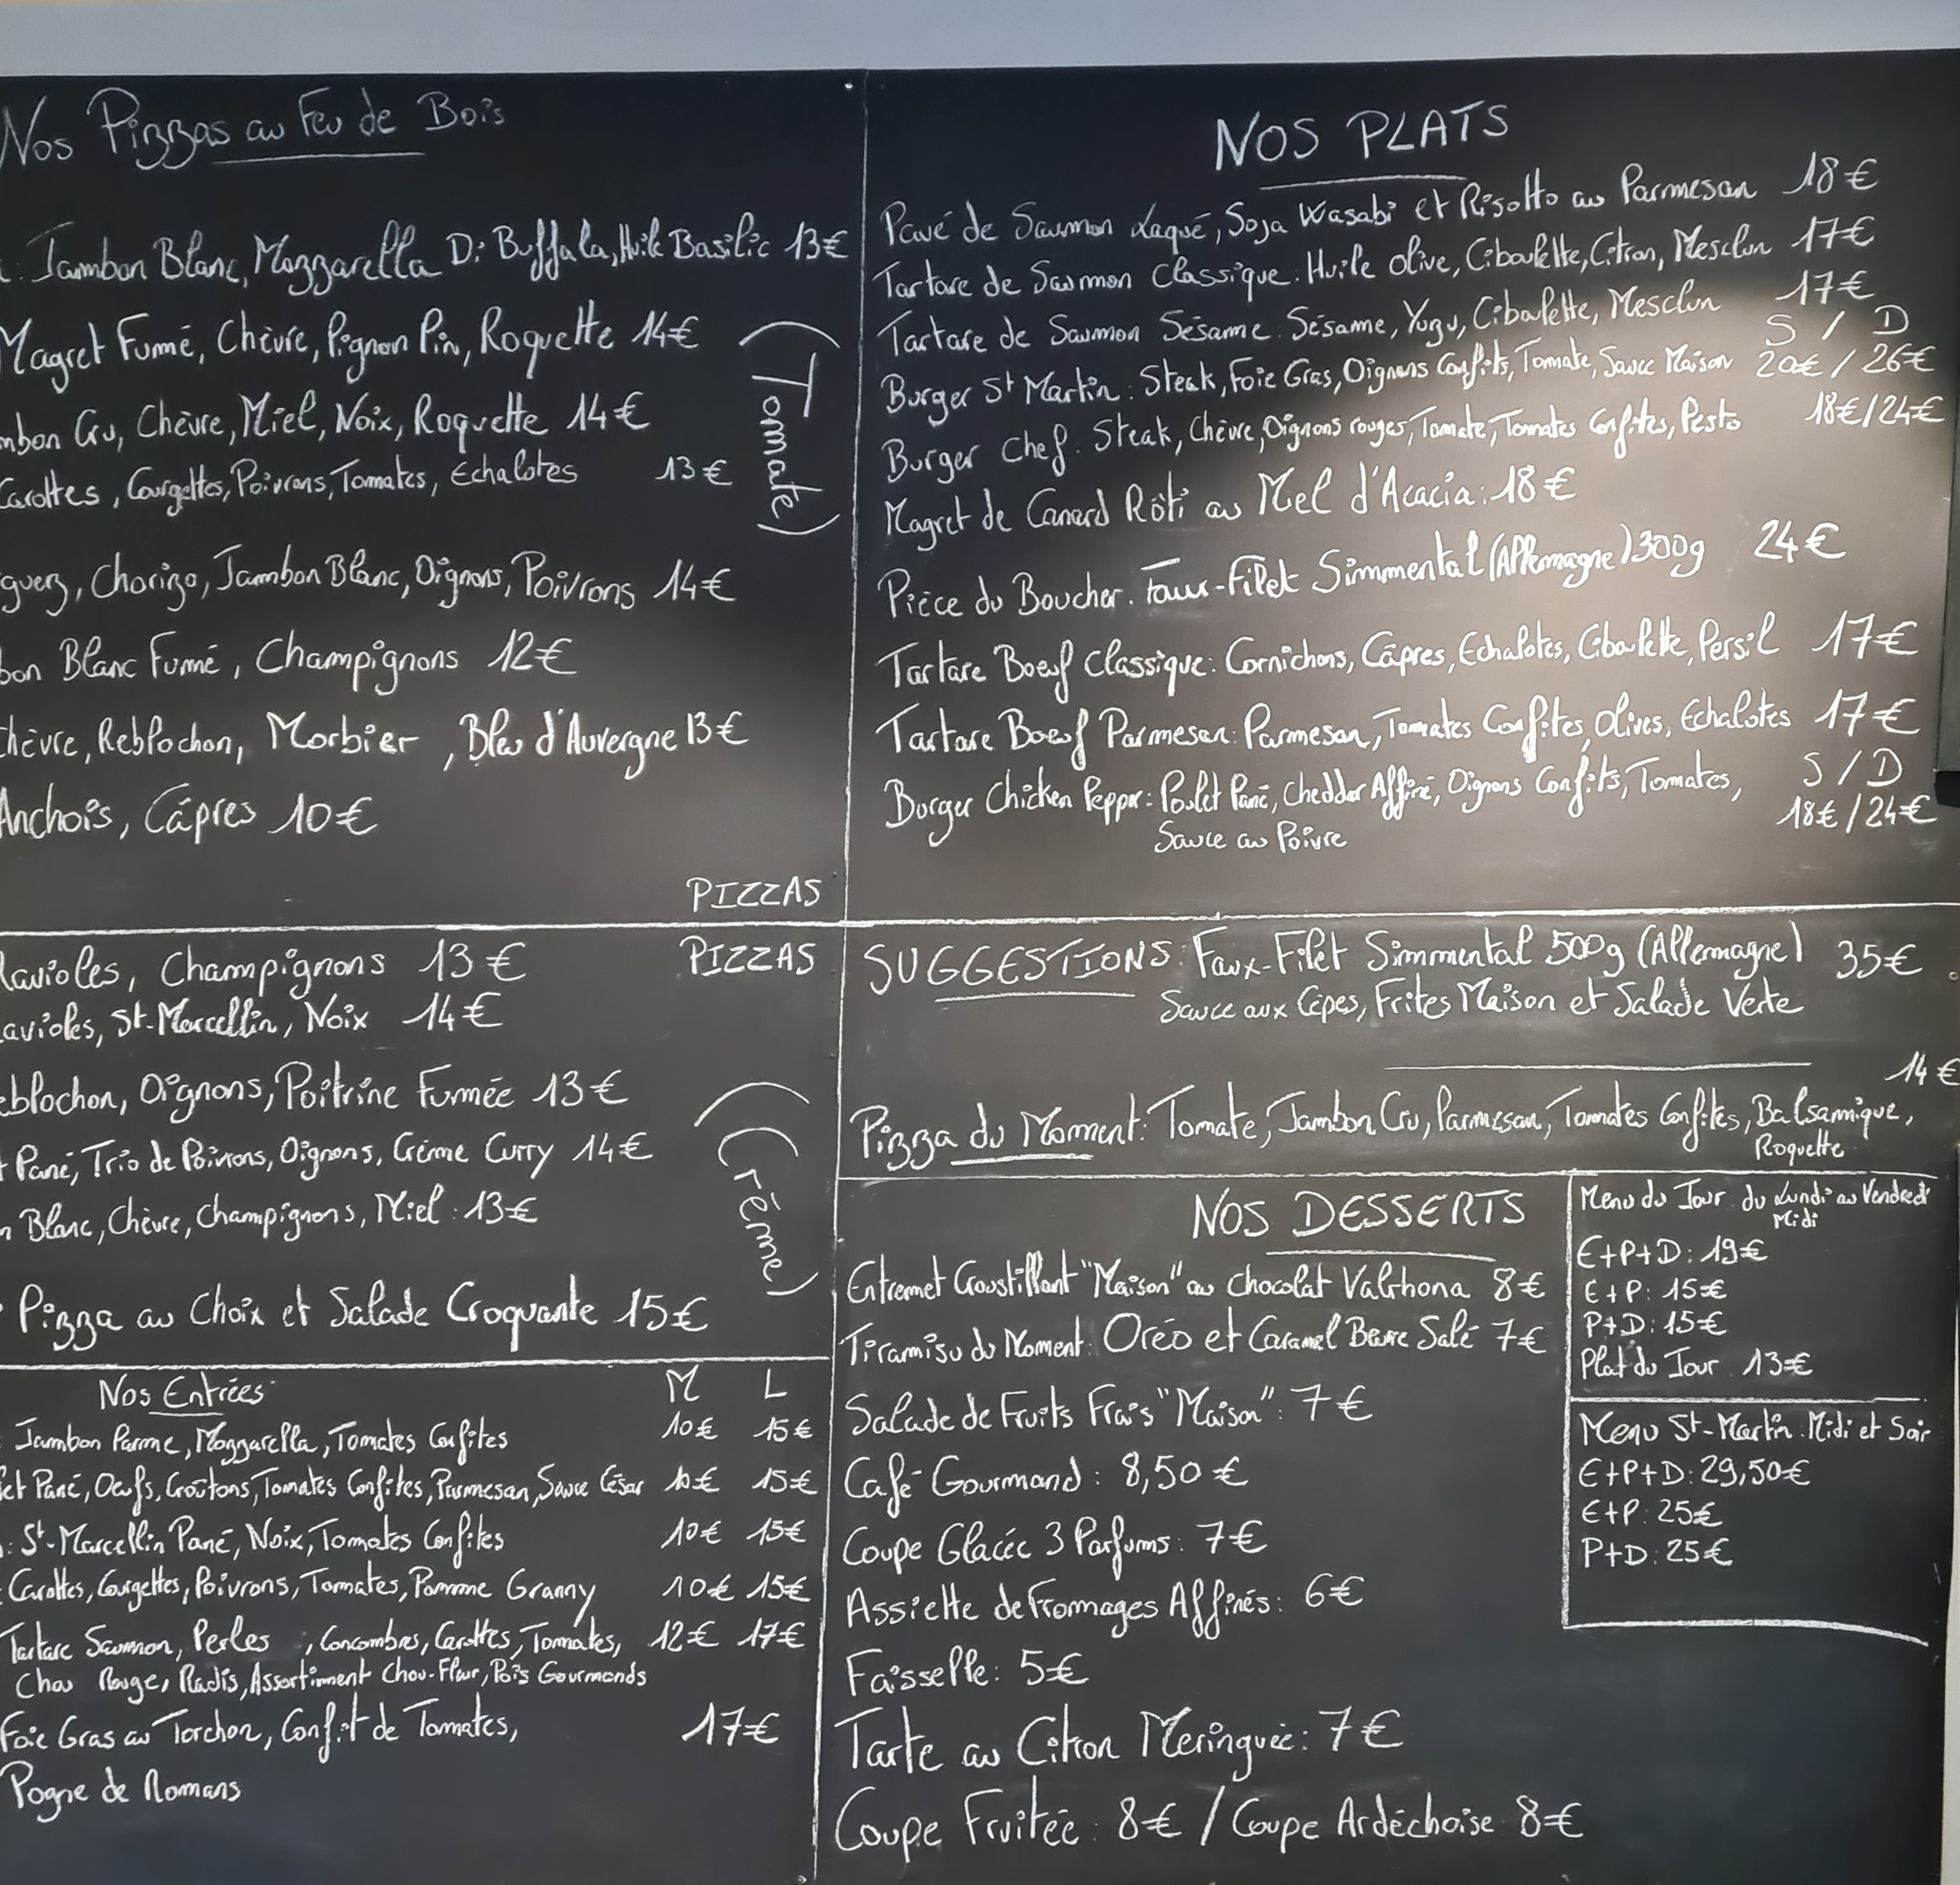 Nos Pizzas au Feu de Bois
Jambon Blanc, Mozzarella Di Buffala, Huile Basilic 13€
Magret Fumé, Chèvre, Pignon Pin, Roquette 14€
mbon Cru, Chèvre, Miel, Noix, Roquette 14€
Carottes, Courgettes, Poivrons, Tomates, Echalotes 13€
(Tomate)
guez, Chorizo, Jambon Blanc, Oignons, Poivrons 14€
bon Blanc Fumé, Champignons 12€
hèvre, Reblochon, Morbier, Bleu d'Auvergne 13€
Anchois, Câpres 10€
PIZZAS
PIZZAS
Ravioles, Champignons 13€
avioles, St-Marcellin, Noix 14€
eblochon, Oignons, Poitrine Fumée 13€
Pané, Trio de Poivrons, Oignons, Crème Curry 14€
n Blanc, Chèvre, Champignons, Miel : 13€
(Crème)
Pizza au Choix et Salade Croquante 15€
Nos Entrées M L
Jambon Parme, Mozzarella, Tomates Confites 10€ 15€
let Pané, Oeufs, Croûtons, Tomates Confites, Parmesan, Sauce César 10€ 15€
: St-Marcellin Pané, Noix, Tomates Confites 10€ 15€
Carottes, Courgettes, Poivrons, Tomates, Pomme Granny 10€ 15€
Tartare Saumon, Perles , Concombres, Carottes, Tomates, 12€ 17€
Chou Rouge, Radis, Assortiment Chou-Fleur, Pois Gourmands
Foie Gras au Torchon, Confit de Tomates, 17€
Pogne de Romans
NOS PLATS
Pavé de Saumon Laqué, Soja Wasabi et Risotto au Parmesan 18€
Tartare de Saumon Classique : Huile Olive, Ciboulette, Citron, Mesclun 17€
Tartare de Saumon Sésame : Sésame, Yuzu, Ciboulette, Mesclun 17€
S / D
Burger St Martin : Steak, Foie Gras, Oignons Confits, Tomate, Sauce Maison 20€ / 26€
Burger Chef : Steak, Chèvre, Oignons rouges, Tomate, Tomates Confites, Pesto 18€/24€
Magret de Canard Rôti au Miel d'Acacia : 18€
Pièce du Boucher. Faux-Filet Simmental (Allemagne) 300g 24€
Tartare Boeuf Classique : Cornichons, Câpres, Echalotes, Ciboulette, Persil 17€
Tartare Boeuf Parmesan : Parmesan, Tomates Confites, Olives, Echalotes 17€
S / D
Burger Chicken Pepper : Poulet Pané, Cheddar Affiné, Oignons Confits, Tomates, 18€/24€
Sauce au Poivre
SUGGESTIONS : Faux-Filet Simmental 500g (Allemagne) 35€
Sauce aux Cèpes, Frites Maison et Salade Verte
14€
Pizza du Moment : Tomate, Jambon Cru, Parmesan, Tomates Confites, Balsamique,
Roquette
NOS DESSERTS
Entremet Croustillant "Maison" au Chocolat Valrhona 8€
Tiramisu du Moment : Oréo et Caramel Beurre Salé 7€
Salade de Fruits Frais "Maison" : 7€
Café Gourmand : 8,50€
Coupe Glacée 3 Parfums : 7€
Assiette de Fromages Affinés : 6€
Faisselle : 5€
Tarte au Citron Meringuée : 7€
Coupe Fruitée : 8€ / Coupe Ardéchoise 8€
Menu du Jour du Lundi au Vendredi
Midi
E+P+D : 19€
E+P : 15€
P+D : 15€
Plat du Jour 13€
Menu St-Martin : Midi et Soir
E+P+D : 29,50€
E+P : 25€
P+D : 25€